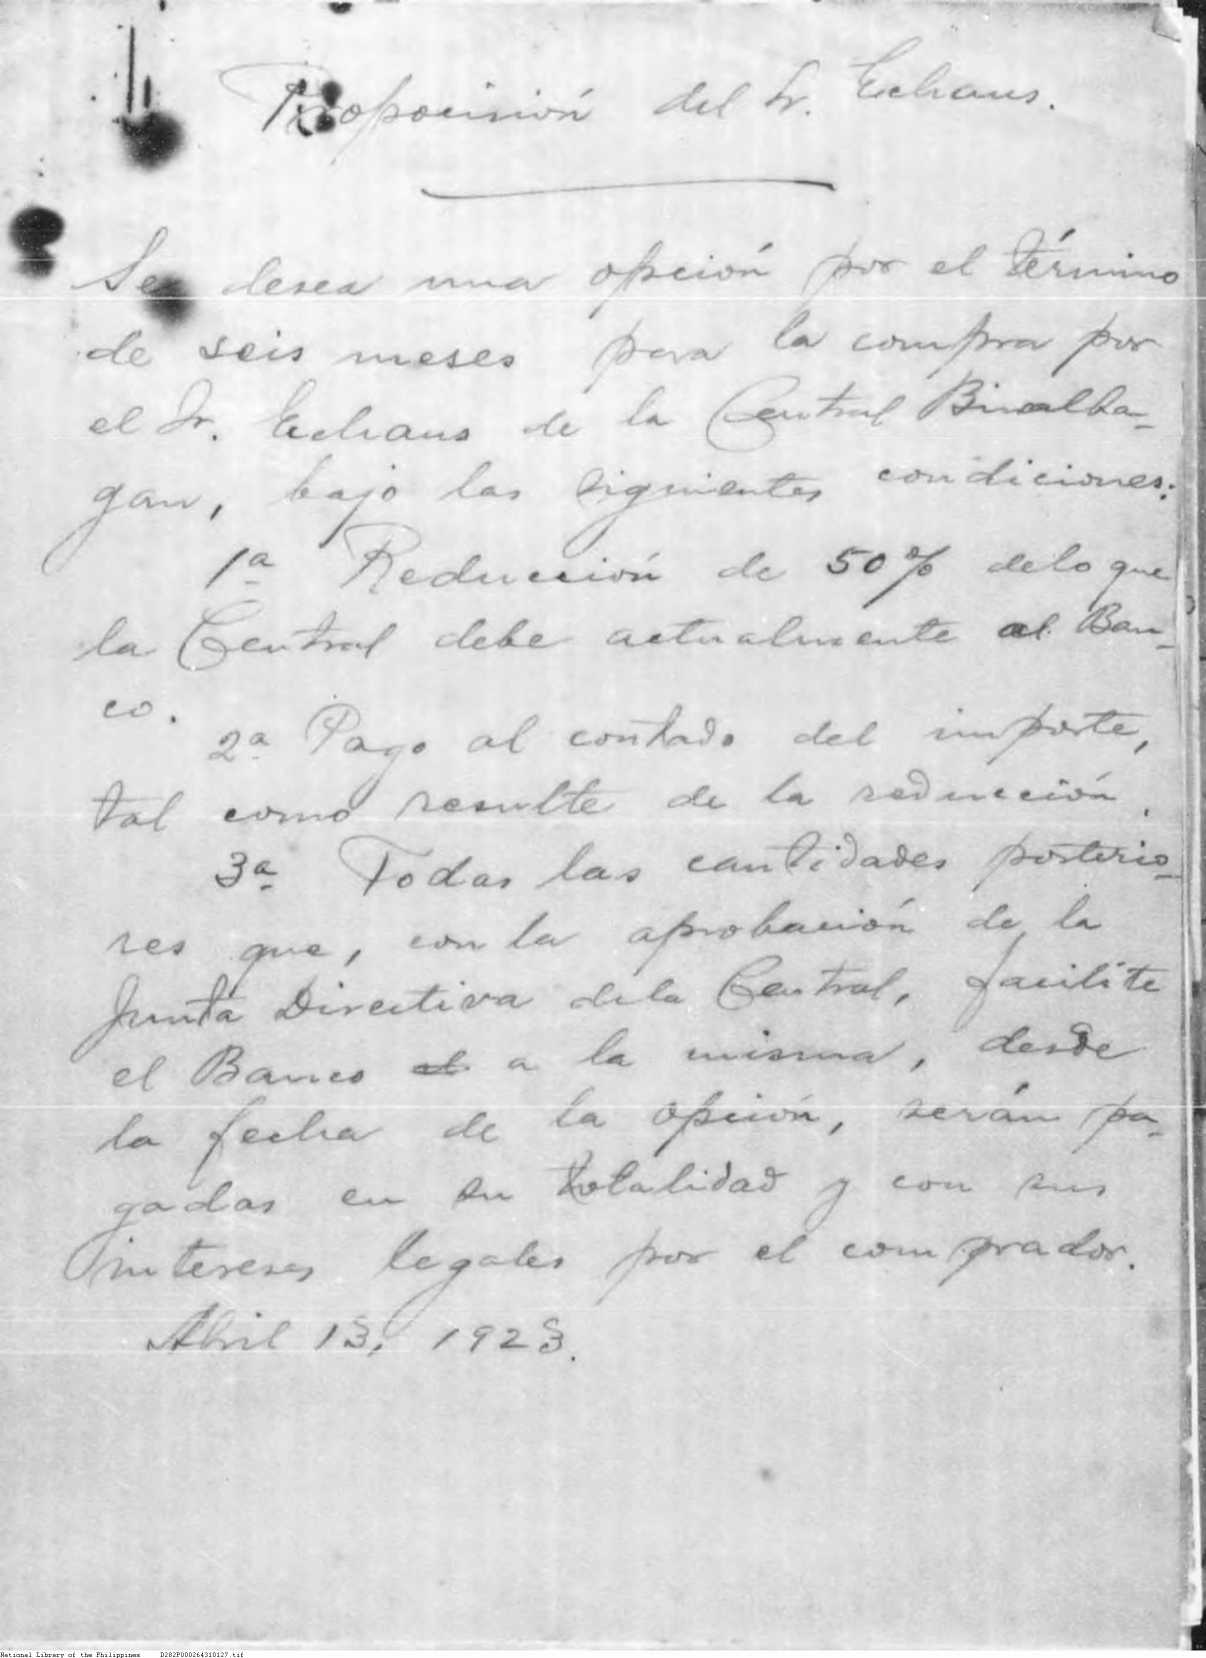 Propocisión del Sr. Echaus.
Se desea una opción por el término
de seis meses para la compra por
el Sr. Echaus de la Central Binalba-
gan, bajo las siguientes condiciones:
1a Reducción de 50% de lo que
la Central debe actualmente al Ban-
co.
2a Pago al contado del importe,
tal como resulte de la reducción.
3a Todas las cantidades posterio-
res que, con la aprobación de la
Junta Directiva de la Central, facilite
el Banco a la misma, desde
la fecha de la opción, serán pa-
gadas en su totalidad y con sus
intereses legales por el comprador.
Abril 13, 1923.
National Library of the Philippines D282P000264310127.tif